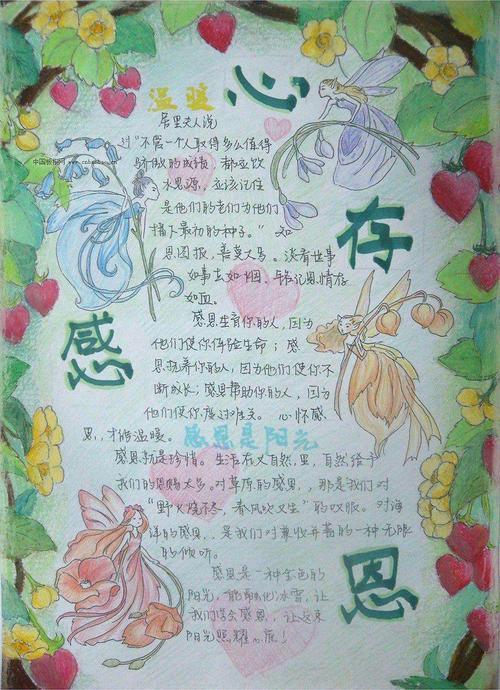 温暖
心
存
感
恩
中国板报网
居里夫人说
过“不管一个人取得多么值得
骄傲的成绩，都应饮
水思源，应该记住
是他们的老师为他们
播下最初的种子。”知
恩图报，善莫大焉。淡看世事
如事去如烟，铭记恩情存
如血。
感恩生育你的人，因为
他们使你体验生命；感
恩抚养你的人，因为他们使你不
断成长；感恩帮助你的人，因为
他们使你度过难关。心怀感
恩，才能温暖。
感恩是阳光
感恩就是珍惜。生活在大自然里，自然给予
我们的恩赐太多。对草原的感恩，，那是我们对
“野火烧不尽，春风吹又生”的叹服。对海
洋的感恩，，是我们对兼收并蓄的一种无限
的倾听。
感恩是一种金色的
阳光，能融化冰雪，让
我们学会感恩，让这束
阳光照耀心底！